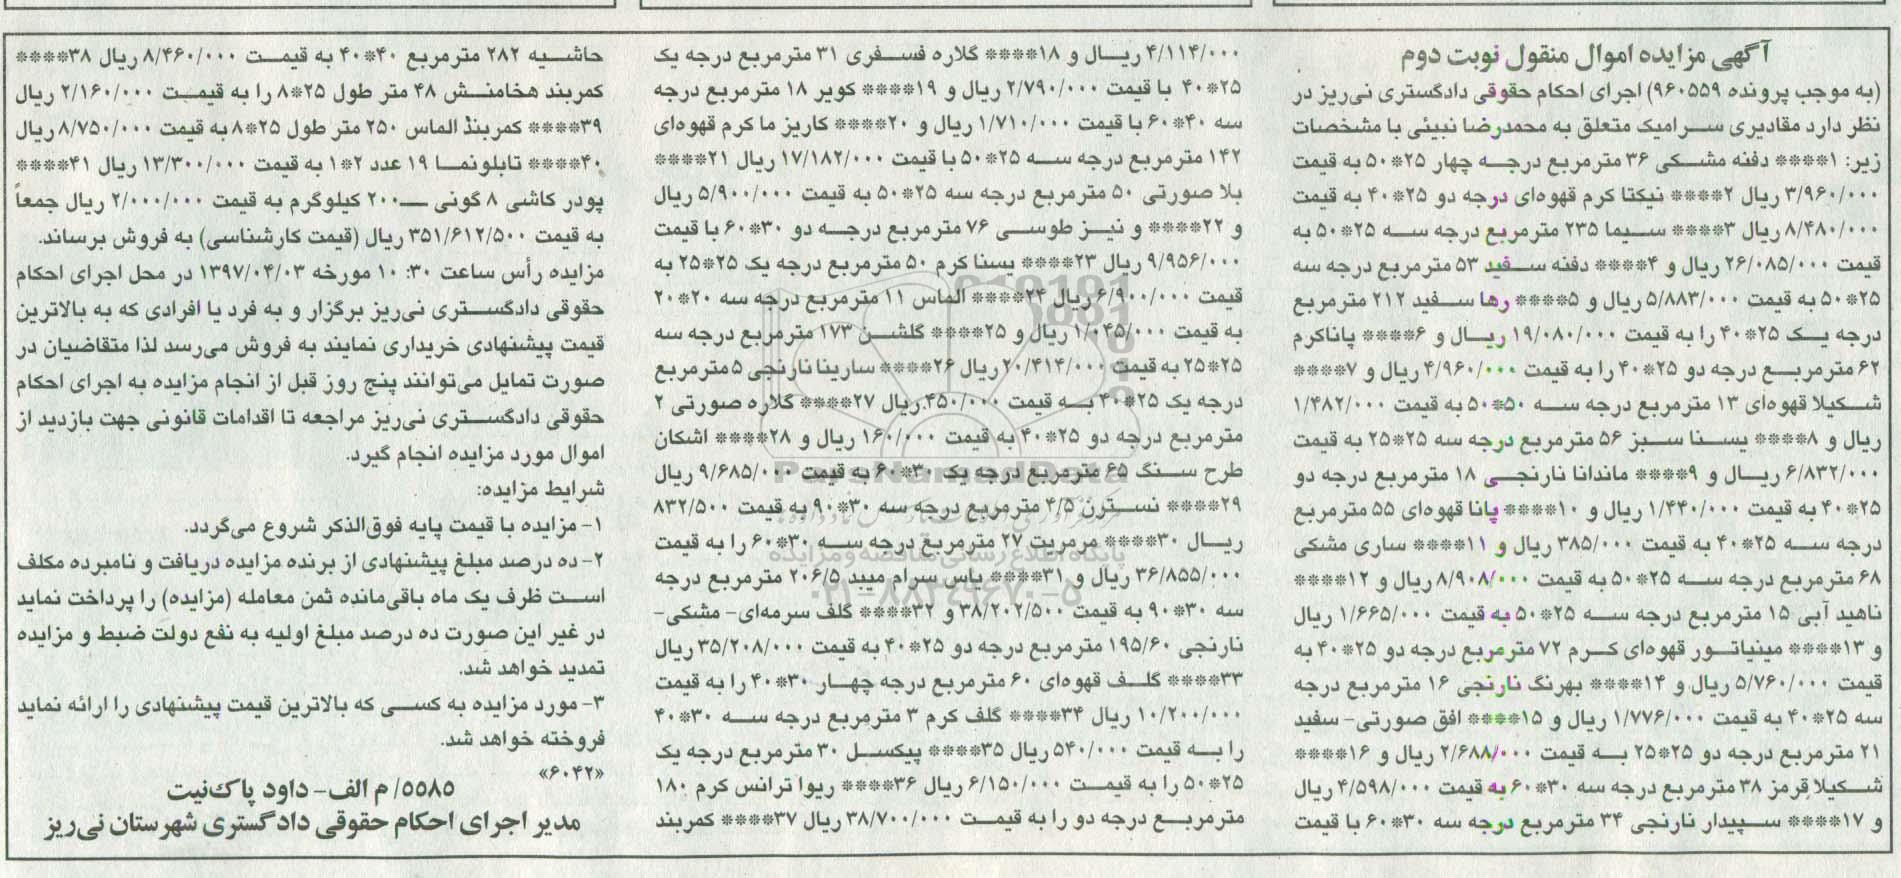 آگهی مزایده اموال منقول نوبت دوم
(به موجب پرونده ۹۶۰۵۵۹) اجرای احکام حقوقی دادگستری نی‌ریز در
نظر دارد مقادیری سرامیک متعلق به محمدرضا نبیئی با مشخصات
زیر: ۱**** دفنه مشکی ۳۶ مترمربع درجه چهار ۲۵*۵۰ به قیمت
۳/۹۶۰/۰۰۰ ریال ۲**** نیکتا کرم قهوه‌ای درجه دو ۲۵*۴۰ به قیمت
۸/۴۸۰/۰۰۰ ریال ۳**** سیما ۲۳۵ مترمربع درجه سه ۲۵*۵۰ به
قیمت ۲۶/۰۸۵/۰۰۰ ریال و ۴**** دفنه سفید ۵۳ مترمربع درجه سه
۲۵*۵۰ به قیمت ۵/۸۸۳/۰۰۰ ریال و ۵**** رها سفید ۲۱۲ مترمربع
درجه یک ۲۵*۴۰ را به قیمت ۱۹/۰۸۰/۰۰۰ ریال و ۶**** پاناکرم
۶۲ مترمربع درجه دو ۲۵*۴۰ را به قیمت ۴/۹۶۰/۰۰۰ ریال و ۷****
شکیلا قهوه‌ای ۱۳ مترمربع درجه سه ۵۰*۵۰ به قیمت ۱/۴۸۲/۰۰۰
ریال و ۸**** یسنا سبز ۵۶ مترمربع درجه سه ۲۵*۲۵ به قیمت
۶/۸۳۲/۰۰۰ ریال و ۹**** ماندانا نارنجی ۱۸ مترمربع درجه دو
۲۵*۴۰ به قیمت ۱/۴۴۰/۰۰۰ ریال و ۱۰**** پانا قهوه‌ای ۵۵ مترمربع
درجه سه ۲۵*۴۰ به قیمت ۳۸۵/۰۰۰ ریال و ۱۱**** ساری مشکی
۶۸ مترمربع درجه سه ۲۵*۵۰ به قیمت ۸/۹۰۸/۰۰۰ ریال و ۱۲****
ناهید آبی ۱۵ مترمربع درجه سه ۲۵*۵۰ به قیمت ۱/۶۶۵/۰۰۰ ریال
و ۱۳**** مینیاتور قهوه‌ای کرم ۷۲ مترمربع درجه دو ۲۵*۴۰ به
قیمت ۵/۷۶۰/۰۰۰ ریال و ۱۴**** بهرنگ نارنجی ۱۶ مترمربع درجه
سه ۲۵*۴۰ به قیمت ۱/۷۷۶/۰۰۰ ریال و ۱۵**** افق صورتی- سفید
۲۱ مترمربع درجه دو ۲۵*۲۵ به قیمت ۲/۶۸۸/۰۰۰ ریال و ۱۶****
شکیلا قرمز ۳۸ مترمربع درجه سه ۳۰*۶۰ به قیمت ۴/۵۹۸/۰۰۰ ریال
و ۱۷**** سپیدار نارنجی ۳۴ مترمربع درجه سه ۳۰*۶۰ با قیمت
۴/۱۱۴/۰۰۰ ریال و ۱۸**** گلاره فسفری ۳۱ مترمربع درجه یک
۲۵*۴۰ با قیمت ۲/۷۹۰/۰۰۰ ریال و ۱۹**** کویر ۱۸ مترمربع درجه
سه ۴۰*۶۰ با قیمت ۱/۷۱۰/۰۰۰ ریال و ۲۰**** کاریز ما کرم قهوه‌ای
۱۴۲ مترمربع درجه سه ۲۵*۵۰ با قیمت ۱۷/۱۸۲/۰۰۰ ریال ۲۱****
یلا صورتی ۵۰ مترمربع درجه سه ۲۵*۵۰ به قیمت ۵/۹۰۰/۰۰۰ ریال
و ۲۲**** و نیز طوسی ۷۶ مترمربع درجه دو ۳۰*۶۰ با قیمت
۹/۹۵۶/۰۰۰ ریال ۲۳**** یسنا کرم ۵۰ مترمربع درجه یک ۲۵*۲۵ به
قیمت ۶/۹۰۰/۰۰۰ ریال ۲۴**** الماس ۱۱ مترمربع درجه سه ۲۰*۲۰
به قیمت ۱/۰۴۵/۰۰۰ ریال و ۲۵**** گلشن ۱۷۳ مترمربع درجه سه
۲۵*۲۵ به قیمت ۲۰/۴۱۴/۰۰۰ ریال ۲۶**** سارینا نارنجی ۵ مترمربع
درجه یک ۲۵*۴۰ به قیمت ۴۵۰/۰۰۰ ریال ۲۷**** گلاره صورتی ۲
مترمربع درجه دو ۲۵*۴۰ به قیمت ۱۶۰/۰۰۰ ریال و ۲۸**** اشکان
طرح سنگ ۶۵ مترمربع درجه یک ۳۰*۶۰ به قیمت ۹/۶۸۵/۰۰۰ ریال
۲۹**** نسترن ۴/۵ مترمربع درجه سه ۳۰*۹۰ به قیمت ۸۳۲/۵۰۰
ریال ۳۰**** مرمریت ۲۷ مترمربع درجه سه ۳۰*۶۰ را به قیمت
۳۶/۸۵۵/۰۰۰ ریال و ۳۱**** یاس سرام میبد ۲۰۶/۵ مترمربع درجه
سه ۳۰*۹۰ به قیمت ۳۸/۲۰۲/۵۰۰ و ۳۲**** گلف سرمه‌ای- مشکی-
نارنجی ۱۹۵/۶۰ مترمربع درجه دو ۲۵*۴۰ به قیمت ۳۵/۲۰۸/۰۰۰ ریال
۳۳**** گلف قهوه‌ای ۶۰ مترمربع درجه چهار ۳۰*۴۰ را به قیمت
۱۰/۲۰۰/۰۰۰ ریال ۳۴**** گلف کرم ۳ مترمربع درجه سه ۳۰*۴۰
را به قیمت ۵۴۰/۰۰۰ ریال ۳۵**** پیکسل ۳۰ مترمربع درجه یک
۲۵*۵۰ را به قیمت ۶/۱۵۰/۰۰۰ ریال ۳۶**** ریوا ترانس کرم ۱۸۰
مترمربع درجه دو را به قیمت ۳۸/۷۰۰/۰۰۰ ریال ۳۷**** کمربند
حاشیه ۲۸۲ مترمربع ۴۰*۴۰ به قیمت ۸/۴۶۰/۰۰۰ ریال ۳۸****
کمربند هخامنش ۴۸ متر طول ۲۵*۸ را به قیمت ۲/۱۶۰/۰۰۰ ریال
۳۹**** کمربند الماس ۲۵۰ متر طول ۲۵*۸ به قیمت ۸/۷۵۰/۰۰۰ ریال
۴۰**** تابلونما ۱۹ عدد ۲*۱ به قیمت ۱۳/۳۰۰/۰۰۰ ریال ۴۱****
پودر کاشی ۸ گونی —۲۰۰ کیلوگرم به قیمت ۲/۰۰۰/۰۰۰ ریال جمعاً
به قیمت ۳۵۱/۶۱۲/۵۰۰ ریال (قیمت کارشناسی) به فروش برساند.
مزایده رأس ساعت ۳۰: ۱۰ مورخه ۱۳۹۷/۰۴/۰۳ در محل اجرای احکام
حقوقی دادگستری نی‌ریز برگزار و به فرد یا افرادی که به بالاترین
قیمت پیشنهادی خریداری نمایند به فروش می‌رسد لذا متقاضیان در
صورت تمایل می‌توانند پنج روز قبل از انجام مزایده به اجرای احکام
حقوقی دادگستری نی‌ریز مراجعه تا اقدامات قانونی جهت بازدید از
اموال مورد مزایده انجام گیرد.
شرایط مزایده:
۱- مزایده با قیمت پایه فوق‌الذکر شروع می‌گردد.
۲- ده درصد مبلغ پیشنهادی از برنده مزایده دریافت و نامبرده مکلف
است ظرف یک ماه باقی‌مانده ثمن معامله (مزایده) را پرداخت نماید
در غیر این صورت ده درصد مبلغ اولیه به نفع دولت ضبط و مزایده
تمدید خواهد شد.
۳- مورد مزایده به کسی که بالاترین قیمت پیشنهادی را ارائه نماید
فروخته خواهد شد.
«۶۰۴۲»
۵۵۸۵/ م الف- داود پاک‌نیت
مدیر اجرای احکام حقوقی دادگستری شهرستان نی‌ریز
ParsNamadData
پایگاه اطلاع رسانی مناقصه و مزایده
۰۲۱-۸۸۳۴۹۶۷۰-۵